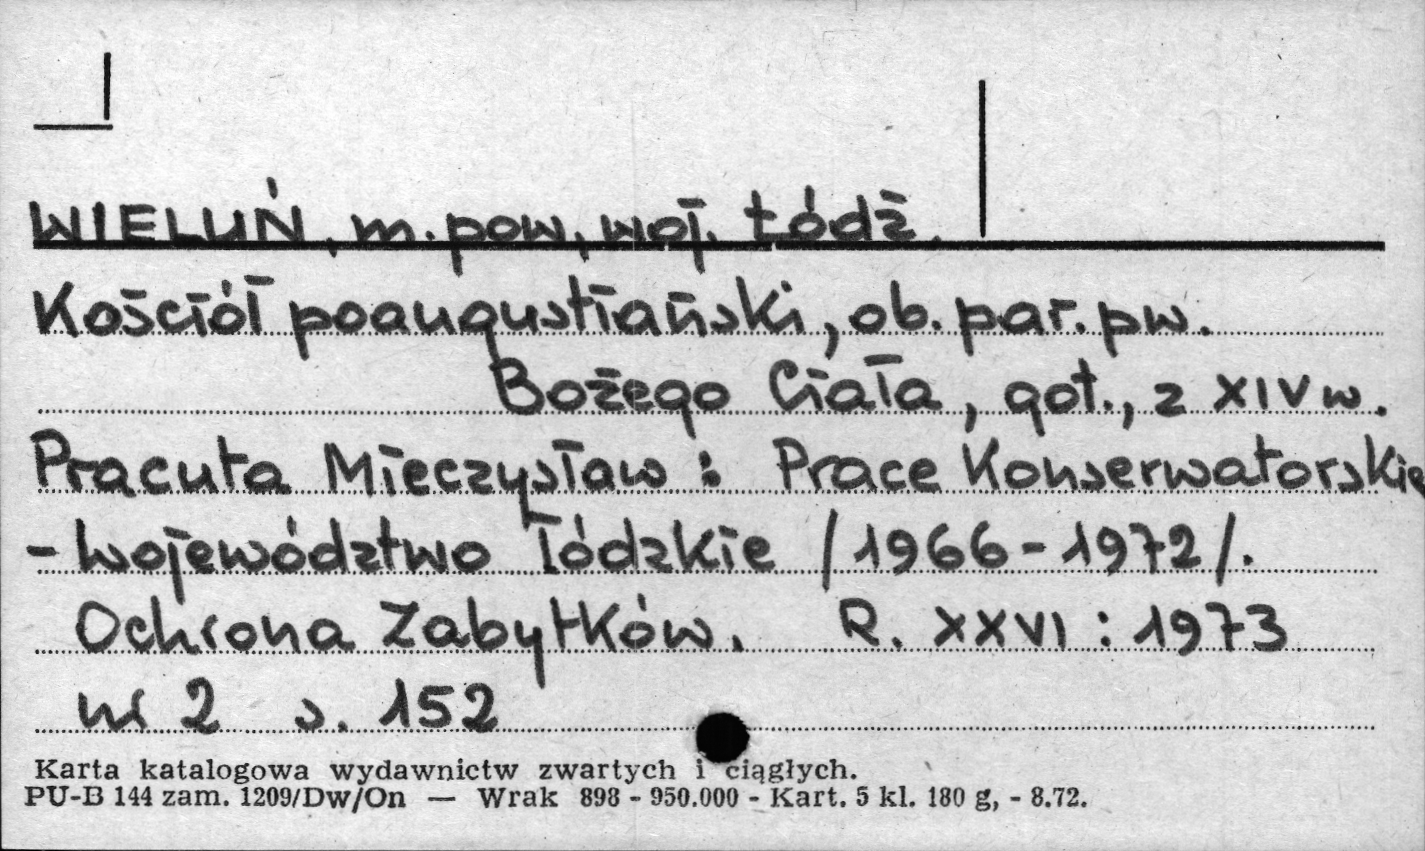 WIELUŃ, m. pow, woj. Łódź.
Kościół poaugustiański, ob. par. pw.
Bożego Ciała, got., z XIV w.
Pracuta Mieczysław : Prace Konserwatorskie
- województwo łódzkie /1966-1972/.
Ochrona Zabytków. R. XXVI : 1973
nr 2 s. 152
Karta katalogowa wydawnictw zwartych i ciągłych.
PU-B 144 zam. 1209/Dw/On — Wrak 898 - 950.000 - Kart. 5 kl. 180 g, - 8.72.